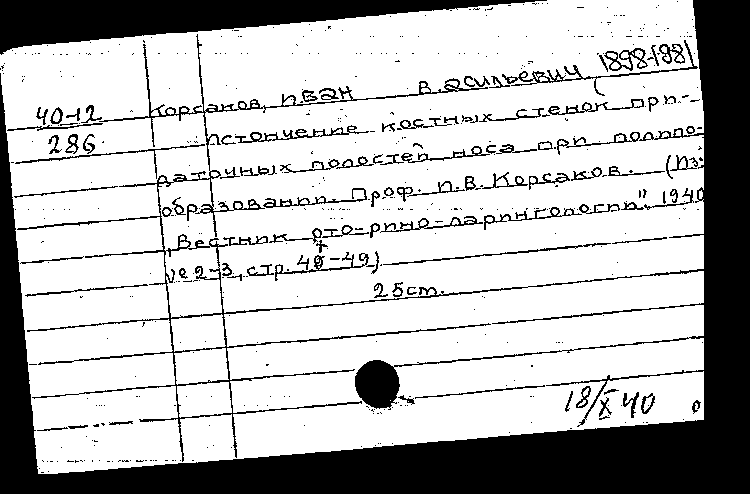 40-12
286
Корсаков, Иван Васильевич 1898-1981
Истончение костных стенок при-
даточных полостей носа при полипо-
образовании. Проф. И.В. Корсаков. (Из:
„Вестник ото-рино-ларингологии". 1940
№ 2-3, стр. 46-49)
25cm.
18/X 40